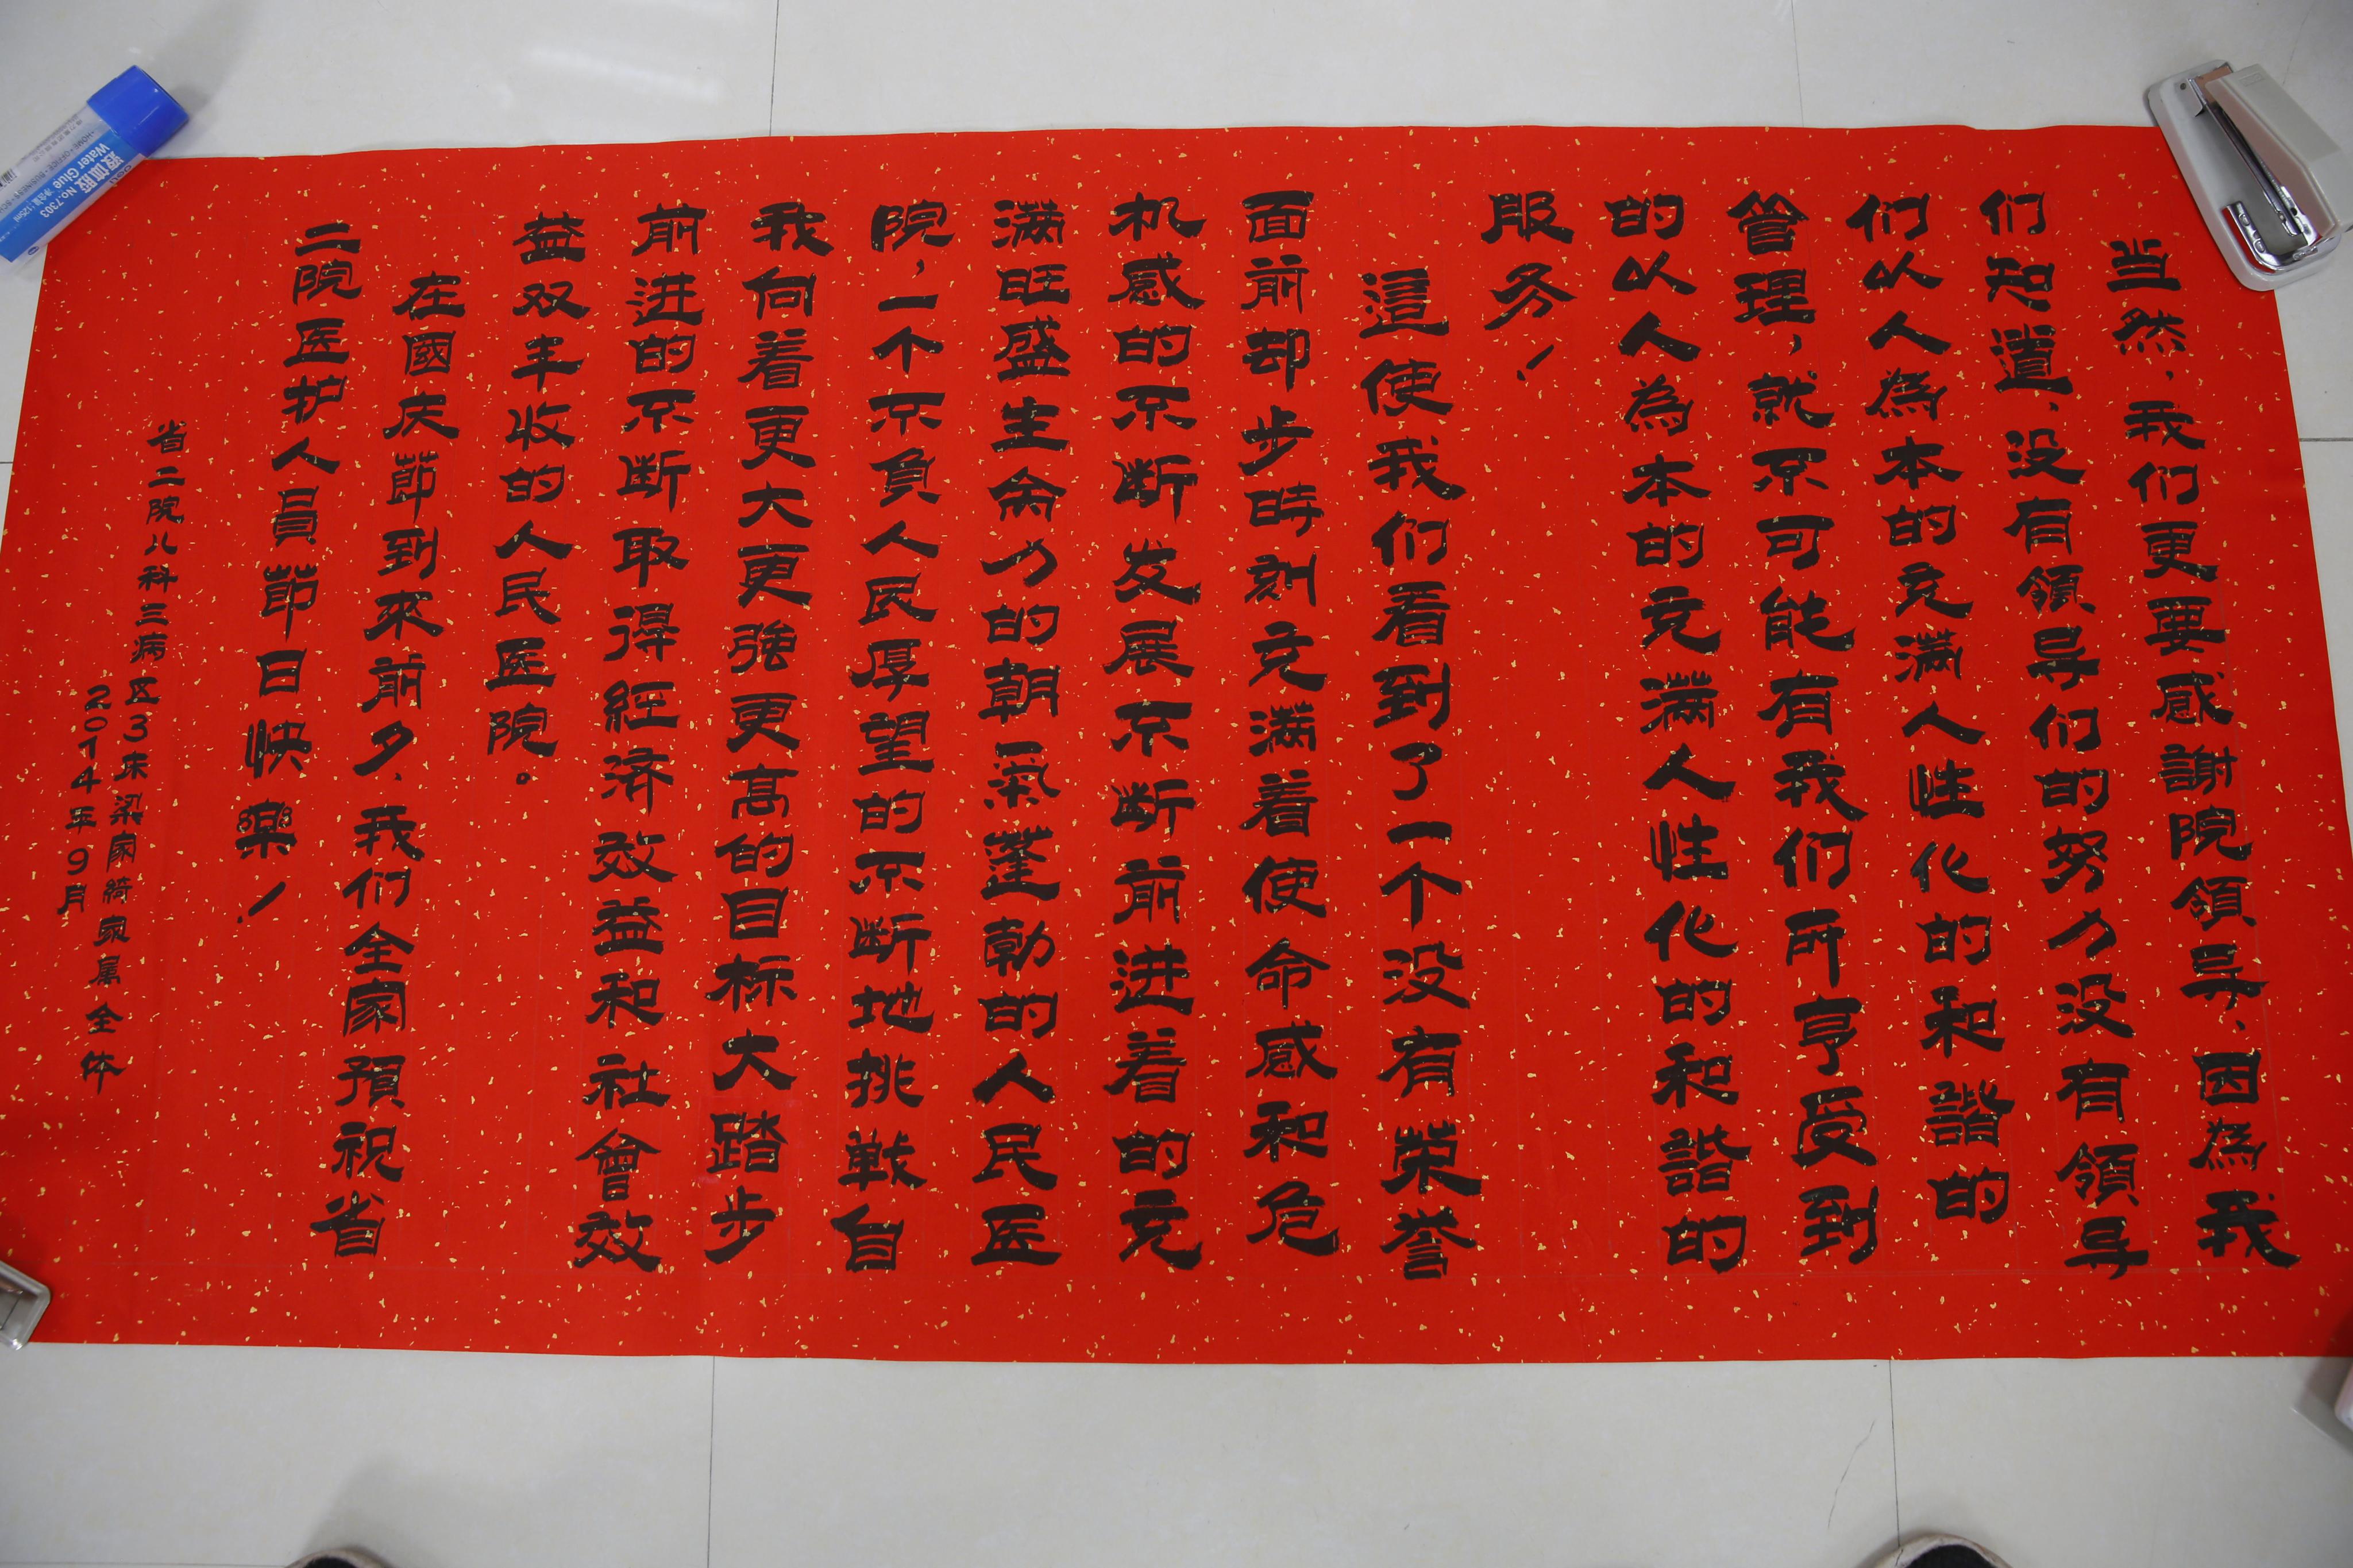 当然，我们更要感謝院領导，因為我
们知道，没有領导们的努力没有領导
们以人為本的充满人性化的和諧的
管理，就不可能有我们所享受到
的以人為本的充满人性化的和諧的
服务！
這使我们看到了一个没有荣誉
面前却步時刻充满着使命感和危
机感的不断发展不断前进着的充
满旺盛生命力的朝氣蓬勃的人民医
院，一个不負人民厚望的不断地挑战自
我向着更大更強更高的目标大踏步
前进的不断取得經济效益和社會效
益双丰收的人民医院。
在國庆節到來前夕，我们全家預祝省
二院医护人員節日快樂！
省二院儿科三病区3床梁家綺家属全体
2014年9月
液体胶 No.7303
Water Glue 净含量:125ml